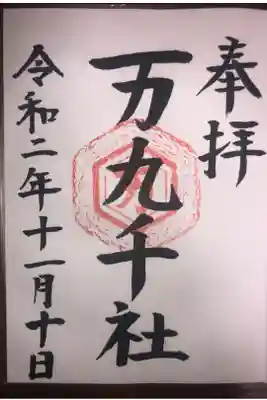 奉拝
万九千社
令和二年十一月十日